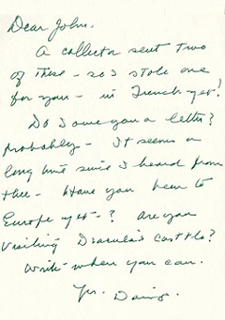 Dear John.
A collector sent two
of these - so I stole one
for you - in French yet!
Do I owe you a letter?
Probably - It seems a
long time since I heard from
thee - Have you been to
Europe yet -? Are you
visiting Dracula's castle?
Write when you can.
Yr.